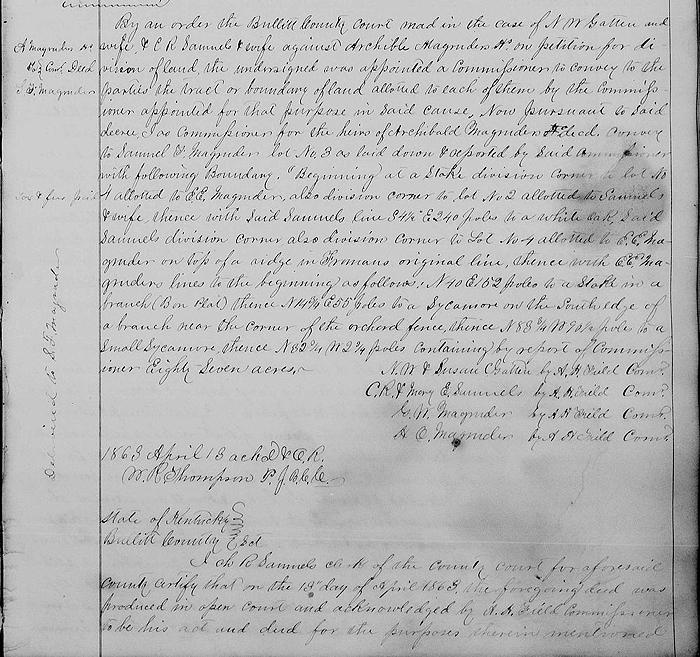 By an order the Bullitt County Court mad in the case of N W Gatten and
wife, & C R Samuels & wife against Archible Magruders Hs on Petition for di-
vision of land, the undersigned was appointed a Commissioner to convey to the
parties the tract or boundary of land allotted to each of them by the Commiss-
ioner appointed for that purpose in Said cause, Now pursuant to Said
decree, I as Commissioner for the heirs of Archibald Magruders decd. convey
to Samuel F. Magruder lot No. 3 as laid down & reported by Said Commissioner
with following Boundary. Beginning at a Stake division corner to lot No
4 allotted to E.E. Magruder, also division corner to lot No 2 allotted to Samuels
& wife, thence with Said Samuels line S 4¼° E 240 poles to a white oak, Said
Samuels division corner also division corner to Lot No 4 allotted to E.E. Ma-
gruder on top of a ridge in Fromans original line, thence with E.E. Ma-
gruders lines to the beginning as follows, N 40 E 152 poles to a Stake in a
branch thence N 14¼ E 55 poles to a Sycamore on the South edge of
a branch near the corner of the orcherd fence, thence N 83 ¼ W pole to a
Small Sycamore, thence N 32 ¼ W 2 ¼ poles containing by report of Commiss-
ioner Eighty Seven acres,
N. W & Susan C Gatten by A. H. Field Comr.
C. R. & Mary E. Samuels by A. H. Field Comr.
G. W. Magruder by A H Field Comr.
A E. Magruder by A H Field Comr.
A Magruder Hs
By Comr. Deed
S F. Magruder
Tax & fees paid
Delivered to S. F Magruder
1863 April 13 ackd & O. R.
W. R. Thompson P. J. B. C. C.
State of Kentucky
Bullitt County Sct
I R. Samuels clerk of the County Court for aforesaid
County certify that on the 13th day of April 1863, the foregoing deed was
produced in open court and acknowledged by A. H. Field Commissioner
to be his act and deed for the purposes therein mentioned